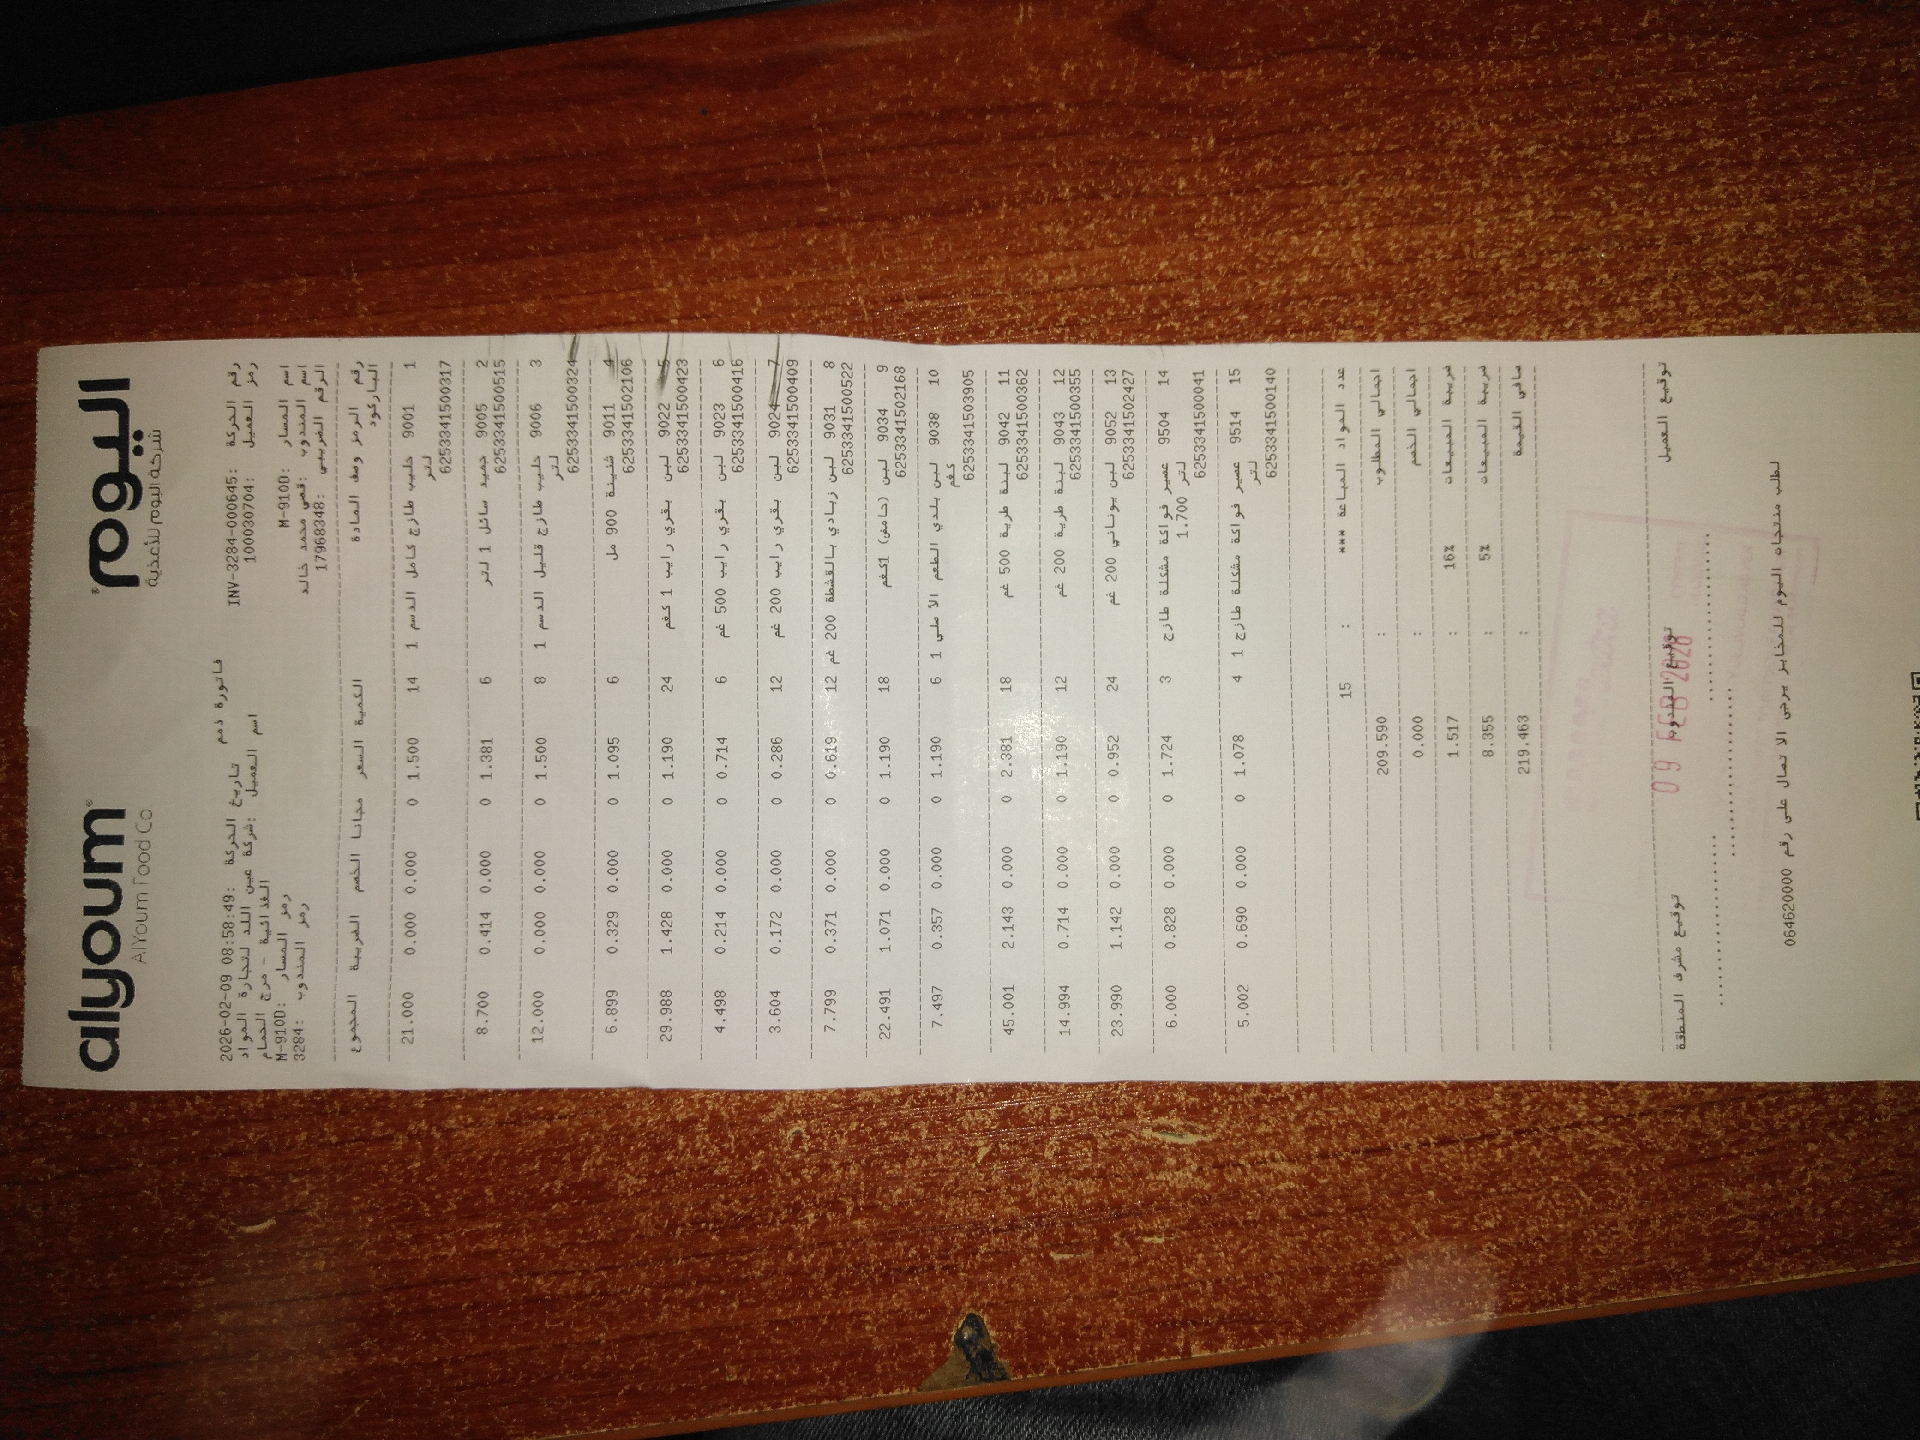 alyoum® اليوم®
AlYoum Food Co. شركة اليوم للأغذية
فاتورة ذمم
رقم الحركة :INV-3284-000645 تاريخ الحركة :2026-02-09 08:58:49
رمز العميل :100030704 اسم العميل :شركة عين اللد لتجارة المواد الغذائية - مرج الحمام
اسم المسار :M-910D رمز المسار :M-910D
اسم المندوب :قصي محمد خالد رمز المندوب :3284
الرقم الضريبي :17968348
رقم الرمز وصف المادة الكمية السعر مجانا الخصم الضريبة المجموع
الباركود
1 9001 حليب طازج كامل الدسم 1 لتر 14 1.500 0 0.000 0.000 21.000
6253341500317
2 9005 جميد سائل 1 لتر 6 1.381 0 0.000 0.414 8.700
6253341500515
3 9006 حليب طازج قليل الدسم 1 لتر 8 1.500 0 0.000 0.000 12.000
6253341500324
4 9011 شنينة 900 مل 6 1.095 0 0.000 0.329 6.899
6253341502106
5 9022 لبن بقري رايب 1 كغم 24 1.190 0 0.000 1.428 29.988
6253341500423
6 9023 لبن بقري رايب 500 غم 6 0.714 0 0.000 0.214 4.498
6253341500416
7 9024 لبن بقري رايب 200 غم 12 0.286 0 0.000 0.172 3.604
6253341500409
8 9031 لبن زبادي بالقشطة 200 غم 12 0.619 0 0.000 0.371 7.799
6253341500522
9 9034 لبن (حامض) 1كغم 18 1.190 0 0.000 1.071 22.491
6253341502168
10 9038 لبن بلدي الطعم الاصلي 1 كغم 6 1.190 0 0.000 0.357 7.497
6253341503905
11 9042 لبنة طرية 500 غم 18 2.381 0 0.000 2.143 45.001
6253341500362
12 9043 لبنة طرية 200 غم 12 1.190 0 0.000 0.714 14.994
6253341500355
13 9052 لبن يوناني 200 غم 24 0.952 0 0.000 1.142 23.990
6253341502427
14 9504 عصير فواكة مشكلة طازج 1.700 لتر 3 1.724 0 0.000 0.828 6.000
6253341500041
15 9514 عصير فواكة مشكلة طازج 1 لتر 4 1.078 0 0.000 0.690 5.002
6253341500140
عدد المواد المباعة *** : 15
اجمالي المطلوب : 209.590
اجمالي الخصم : 0.000
ضريبة المبيعات 16% : 1.517
ضريبة المبيعات 5% : 8.355
صافي القيمة : 219.463
توقيع العميل توقيع المندوب توقيع مشرف المنطقة
09 FEB 2026
لطلب منتجات اليوم للمخابز يرجى الاتصال على رقم 064620000